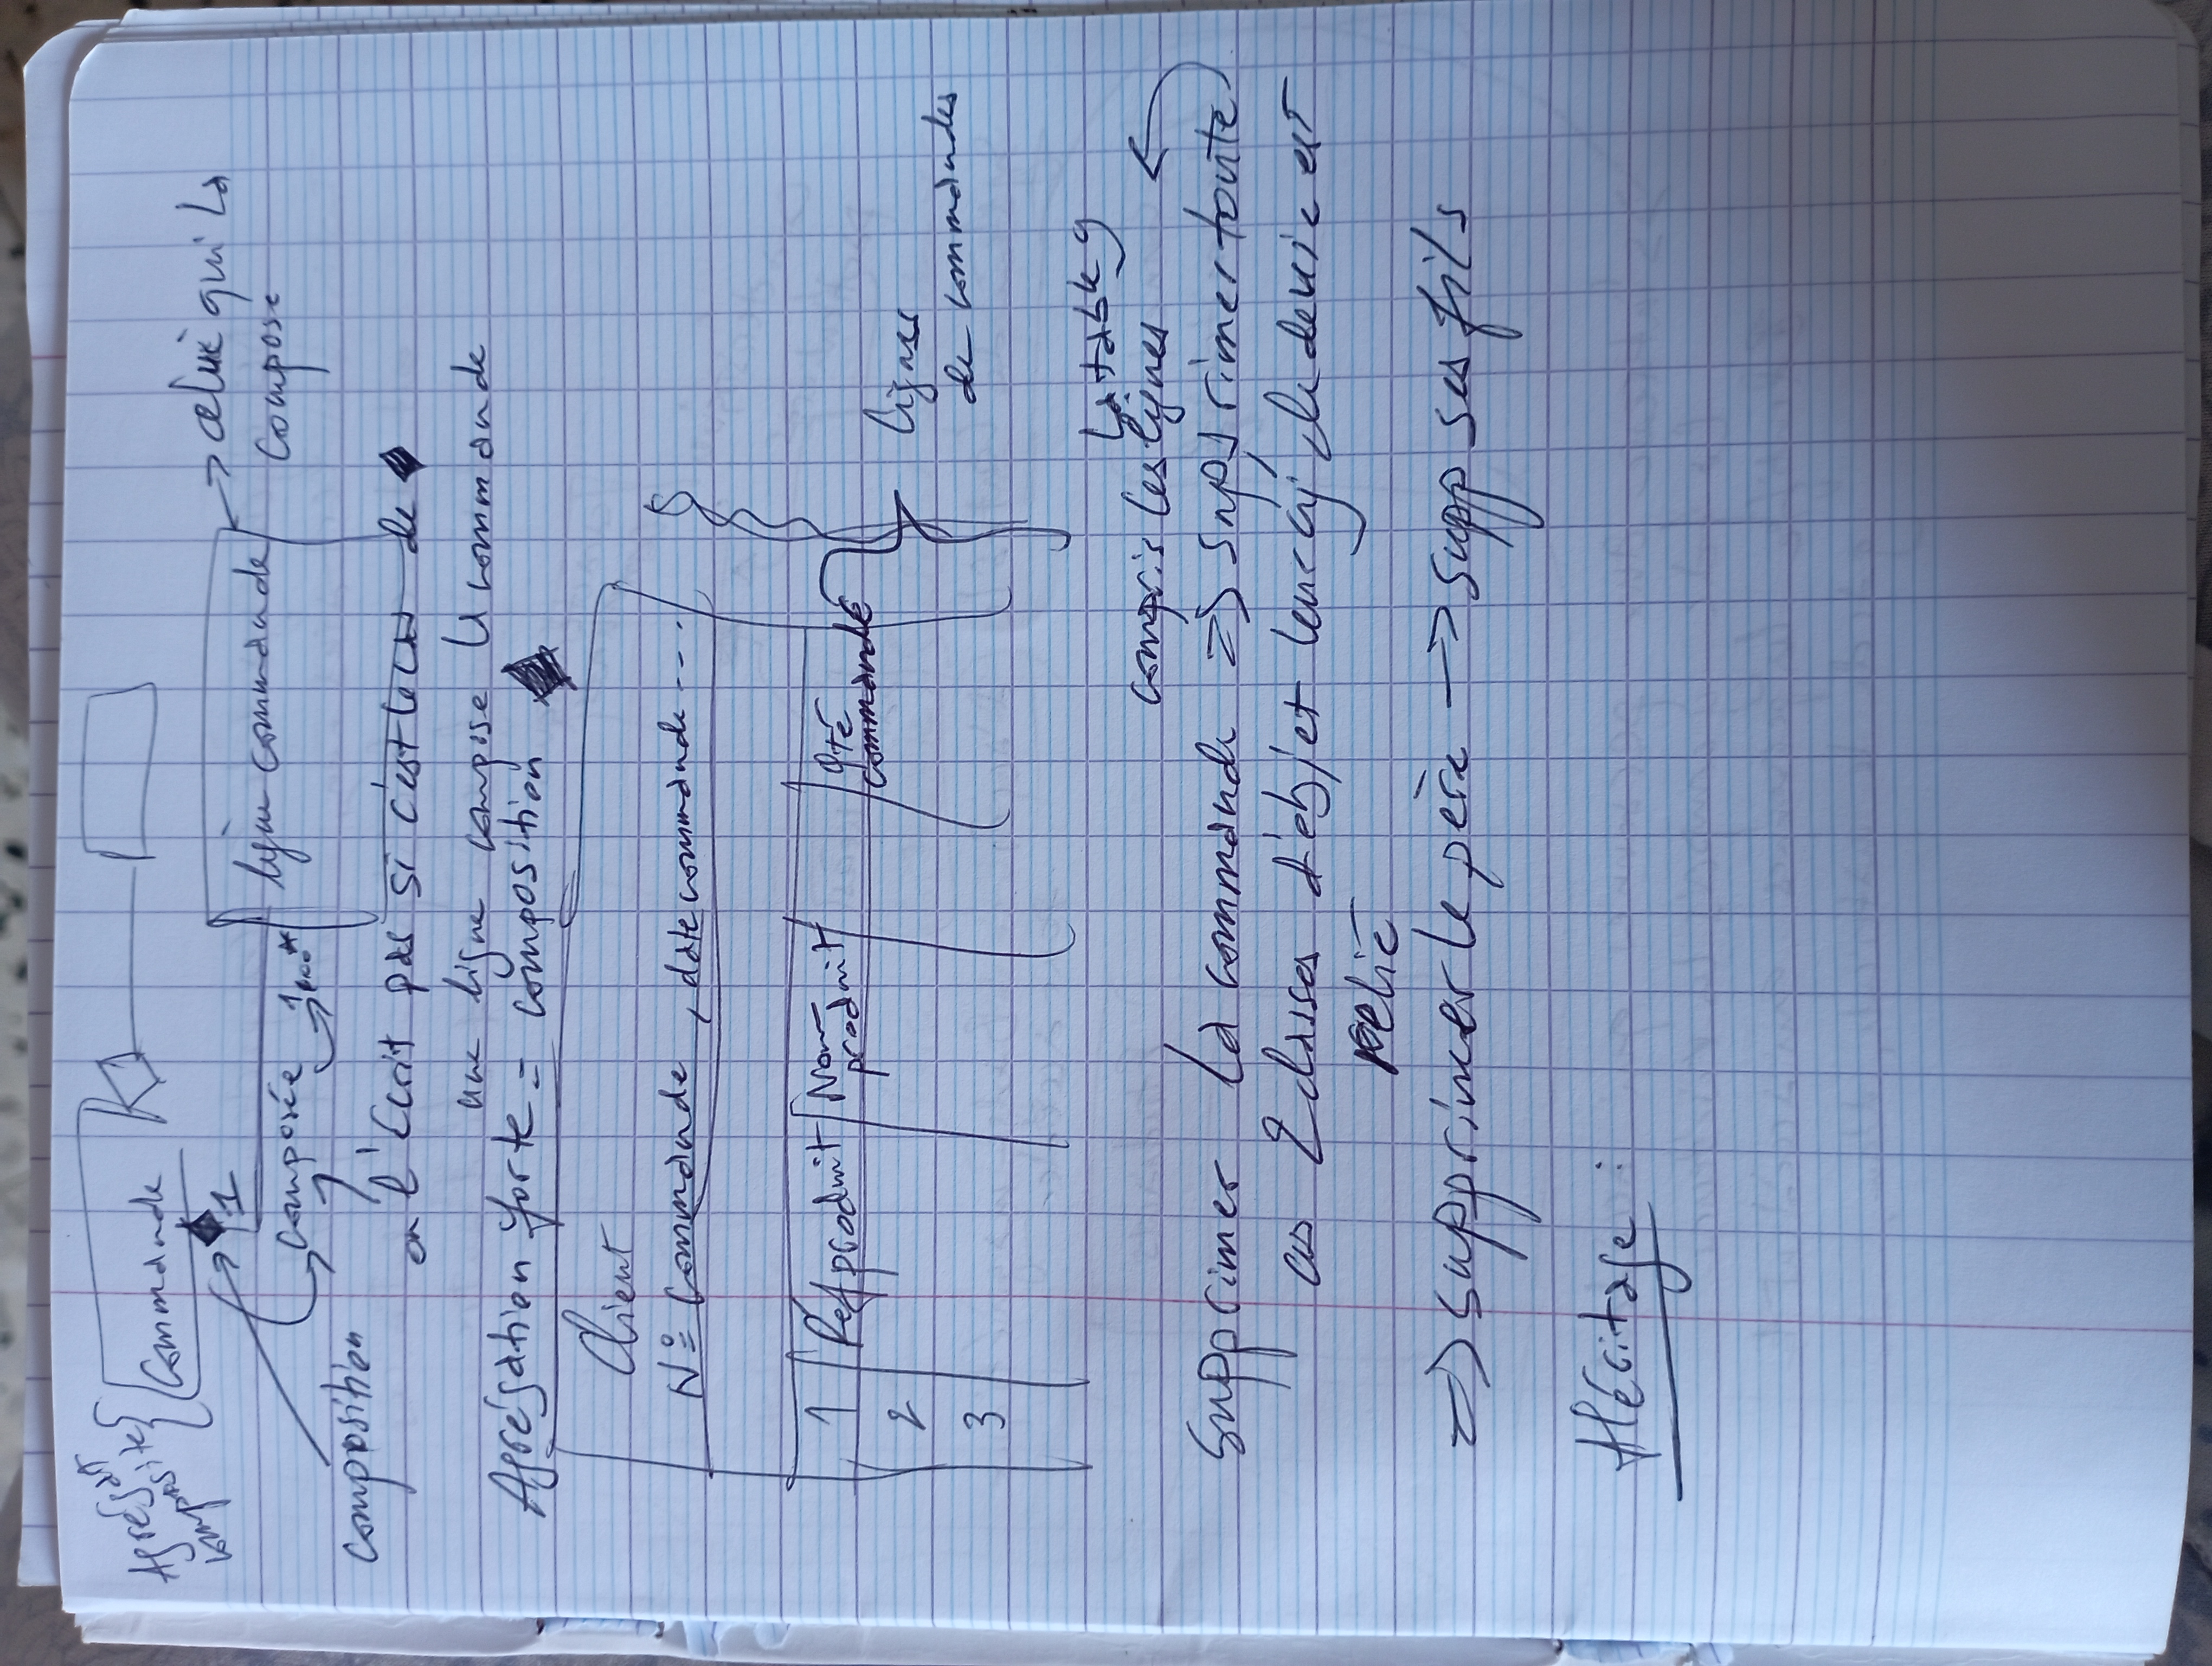 Agrégat
composite
Commande
1
composée 1...*
ligne commande
celui qui la
compose
composition
on l'écrit pas si c'est le cas de
une ligne compose la commande
Agrégation forte = composition
Client
N° Commande, date commande ....
1 Ref produit Nom produit Qté commandé
2
3
lignes
de commandes
la table y
compris les lignes
Supprimer la commande => supprimer toute
ces 2 classes d'objet leur cycle de vie est
relié
=> supprimer le père -> supp ses fils
Héritage :